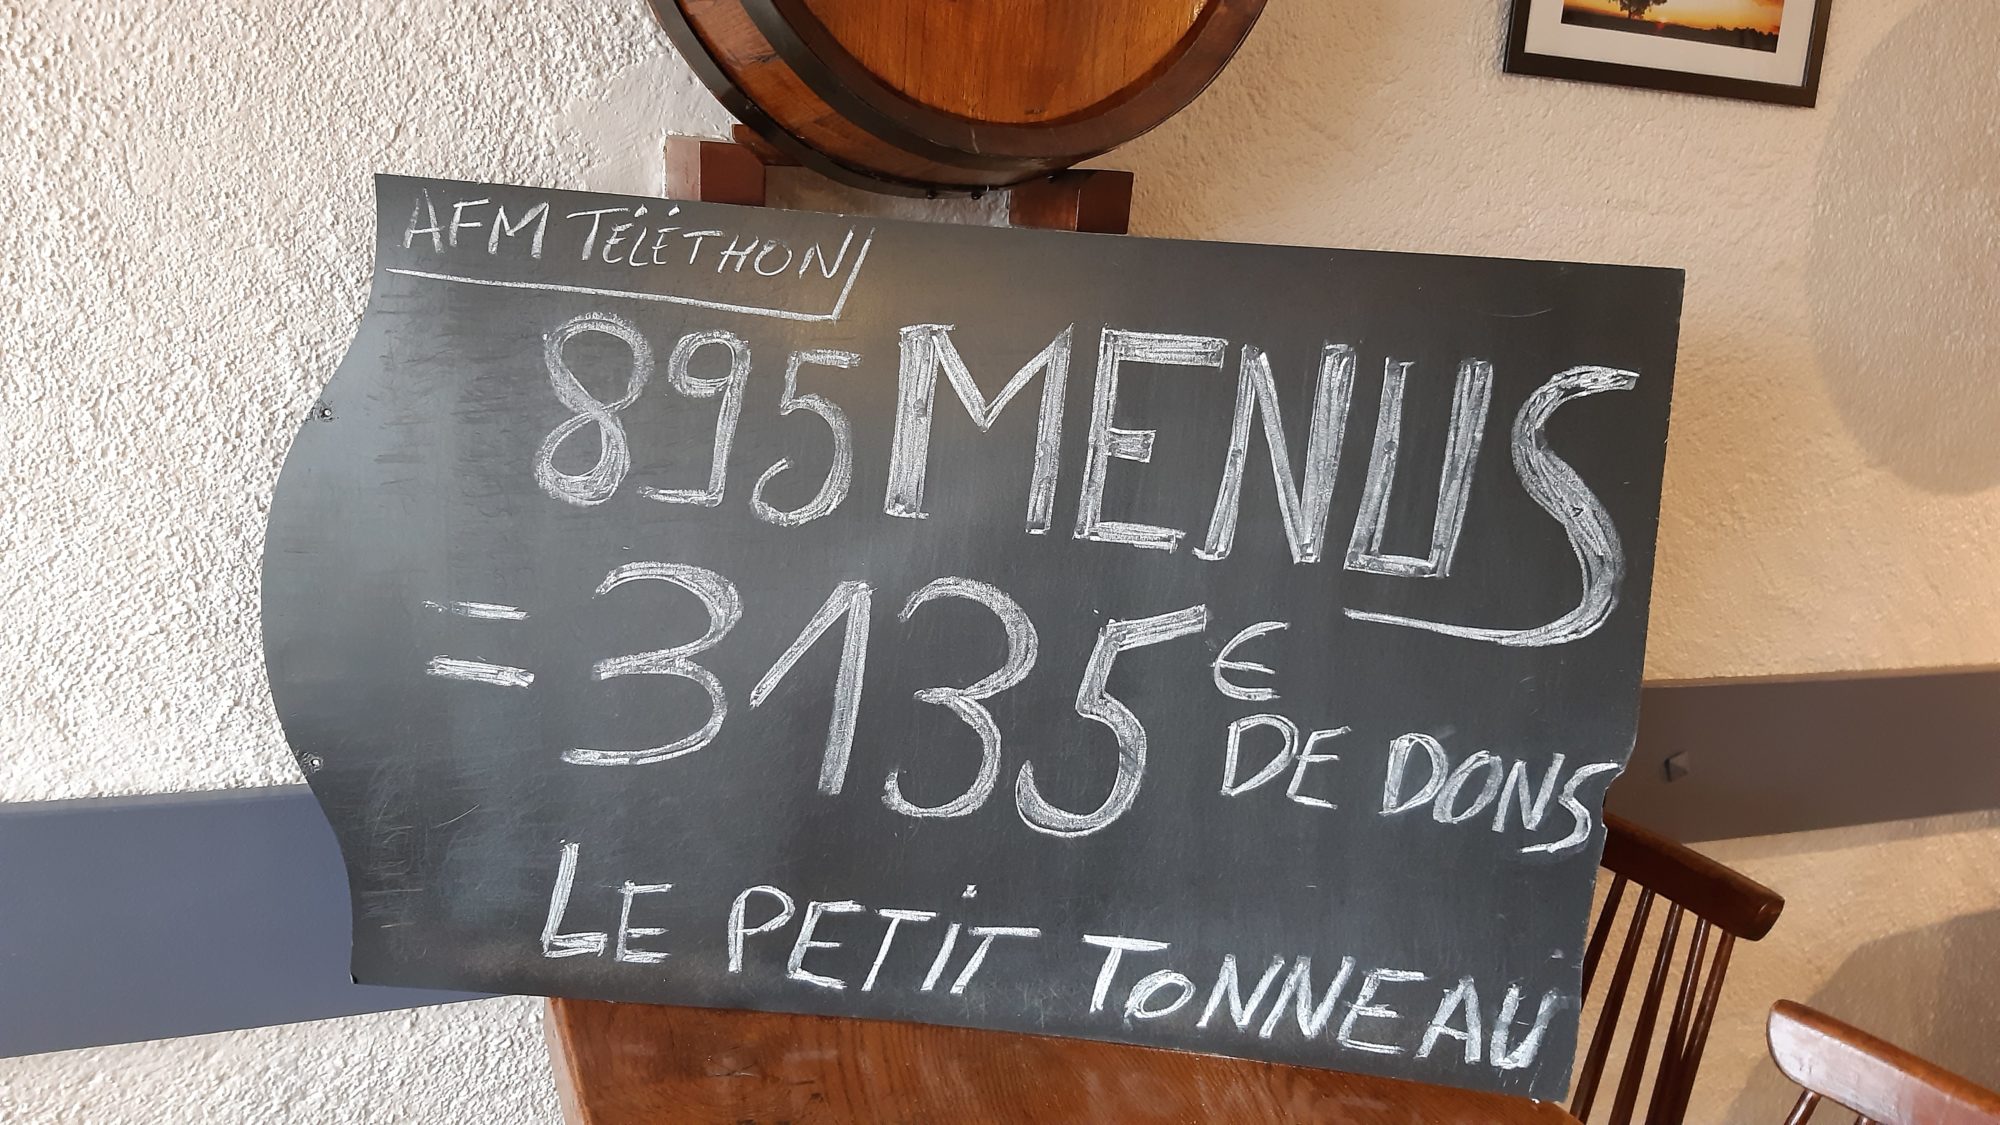 AFM TÉLÉTHON
895 MENUS
= 3135 € DE DONS
LE PETIT TONNEAU